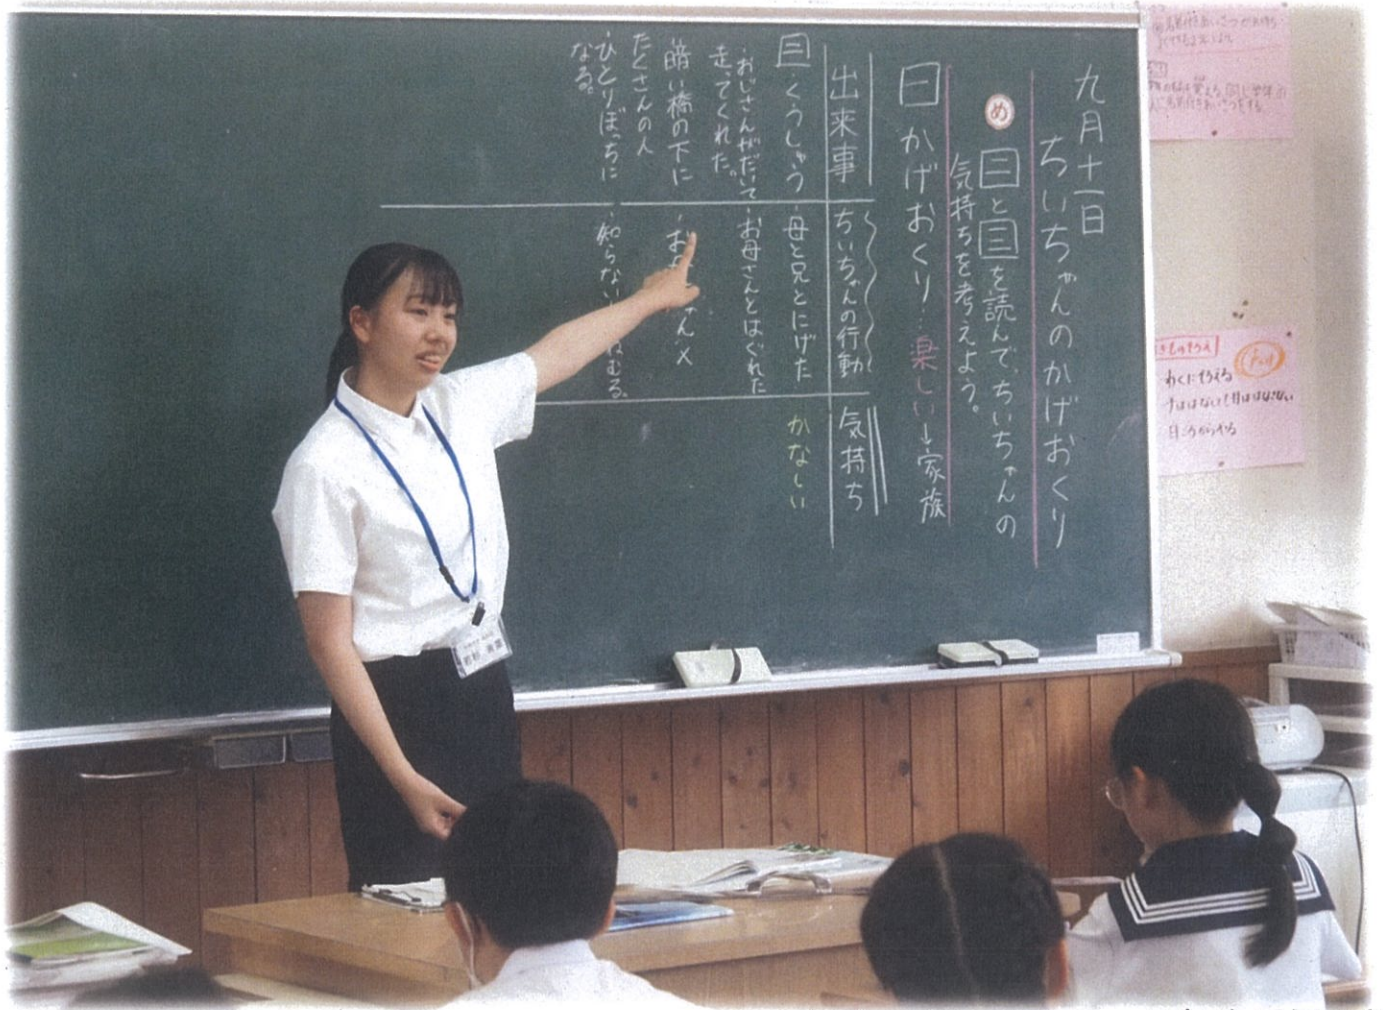 九月十一日
ちいちゃんのかげおくり
め
二と三を読んで、ちいちゃんの
気持ちを考えよう。
一 かげおくり…楽しい→家族
出来事
ちいちゃんの行動
気持ち
二・くうしゅう
・母と兄とにげた
かなしい
・おじさんがだいて
走ってくれた。
・お母さんとはぐれた
・暗い橋の下に
たくさんの人
・ひとりぼっちに
なる。
わくにそろえる